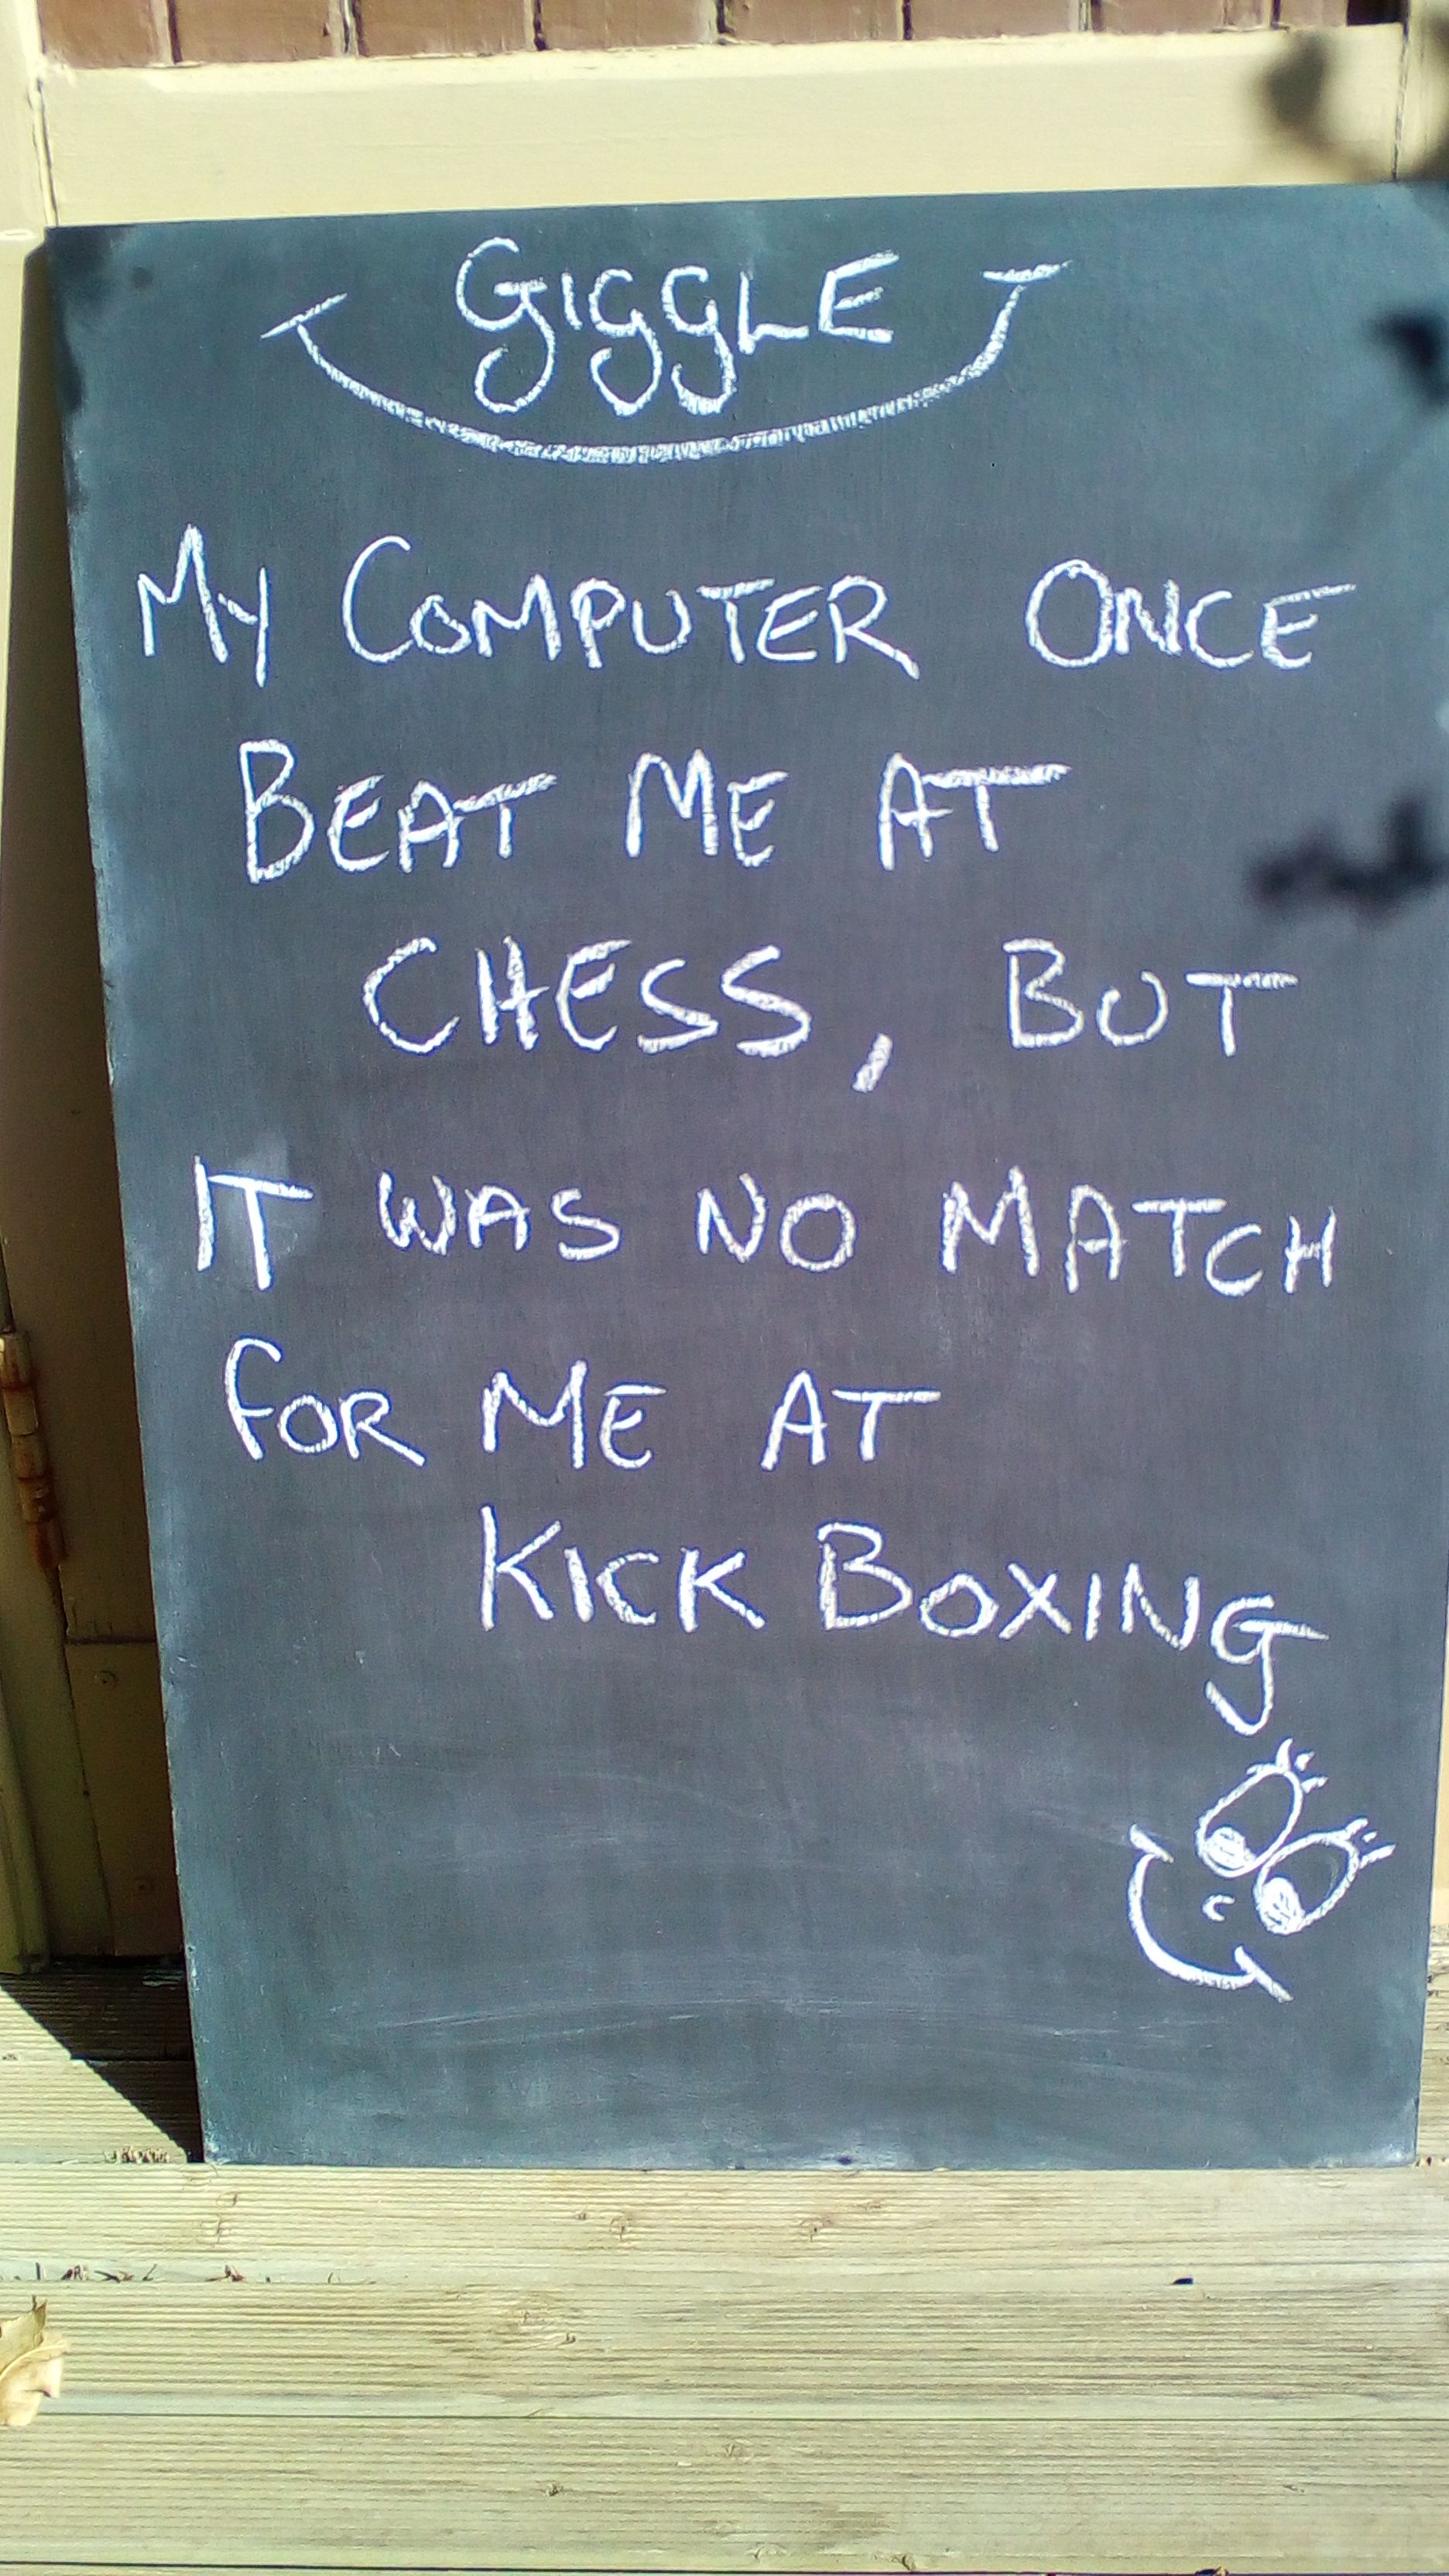 GIGGLE
MY COMPUTER ONCE
BEAT ME AT
CHESS, BUT
IT WAS NO MATCH
FOR ME AT
KICK BOXING